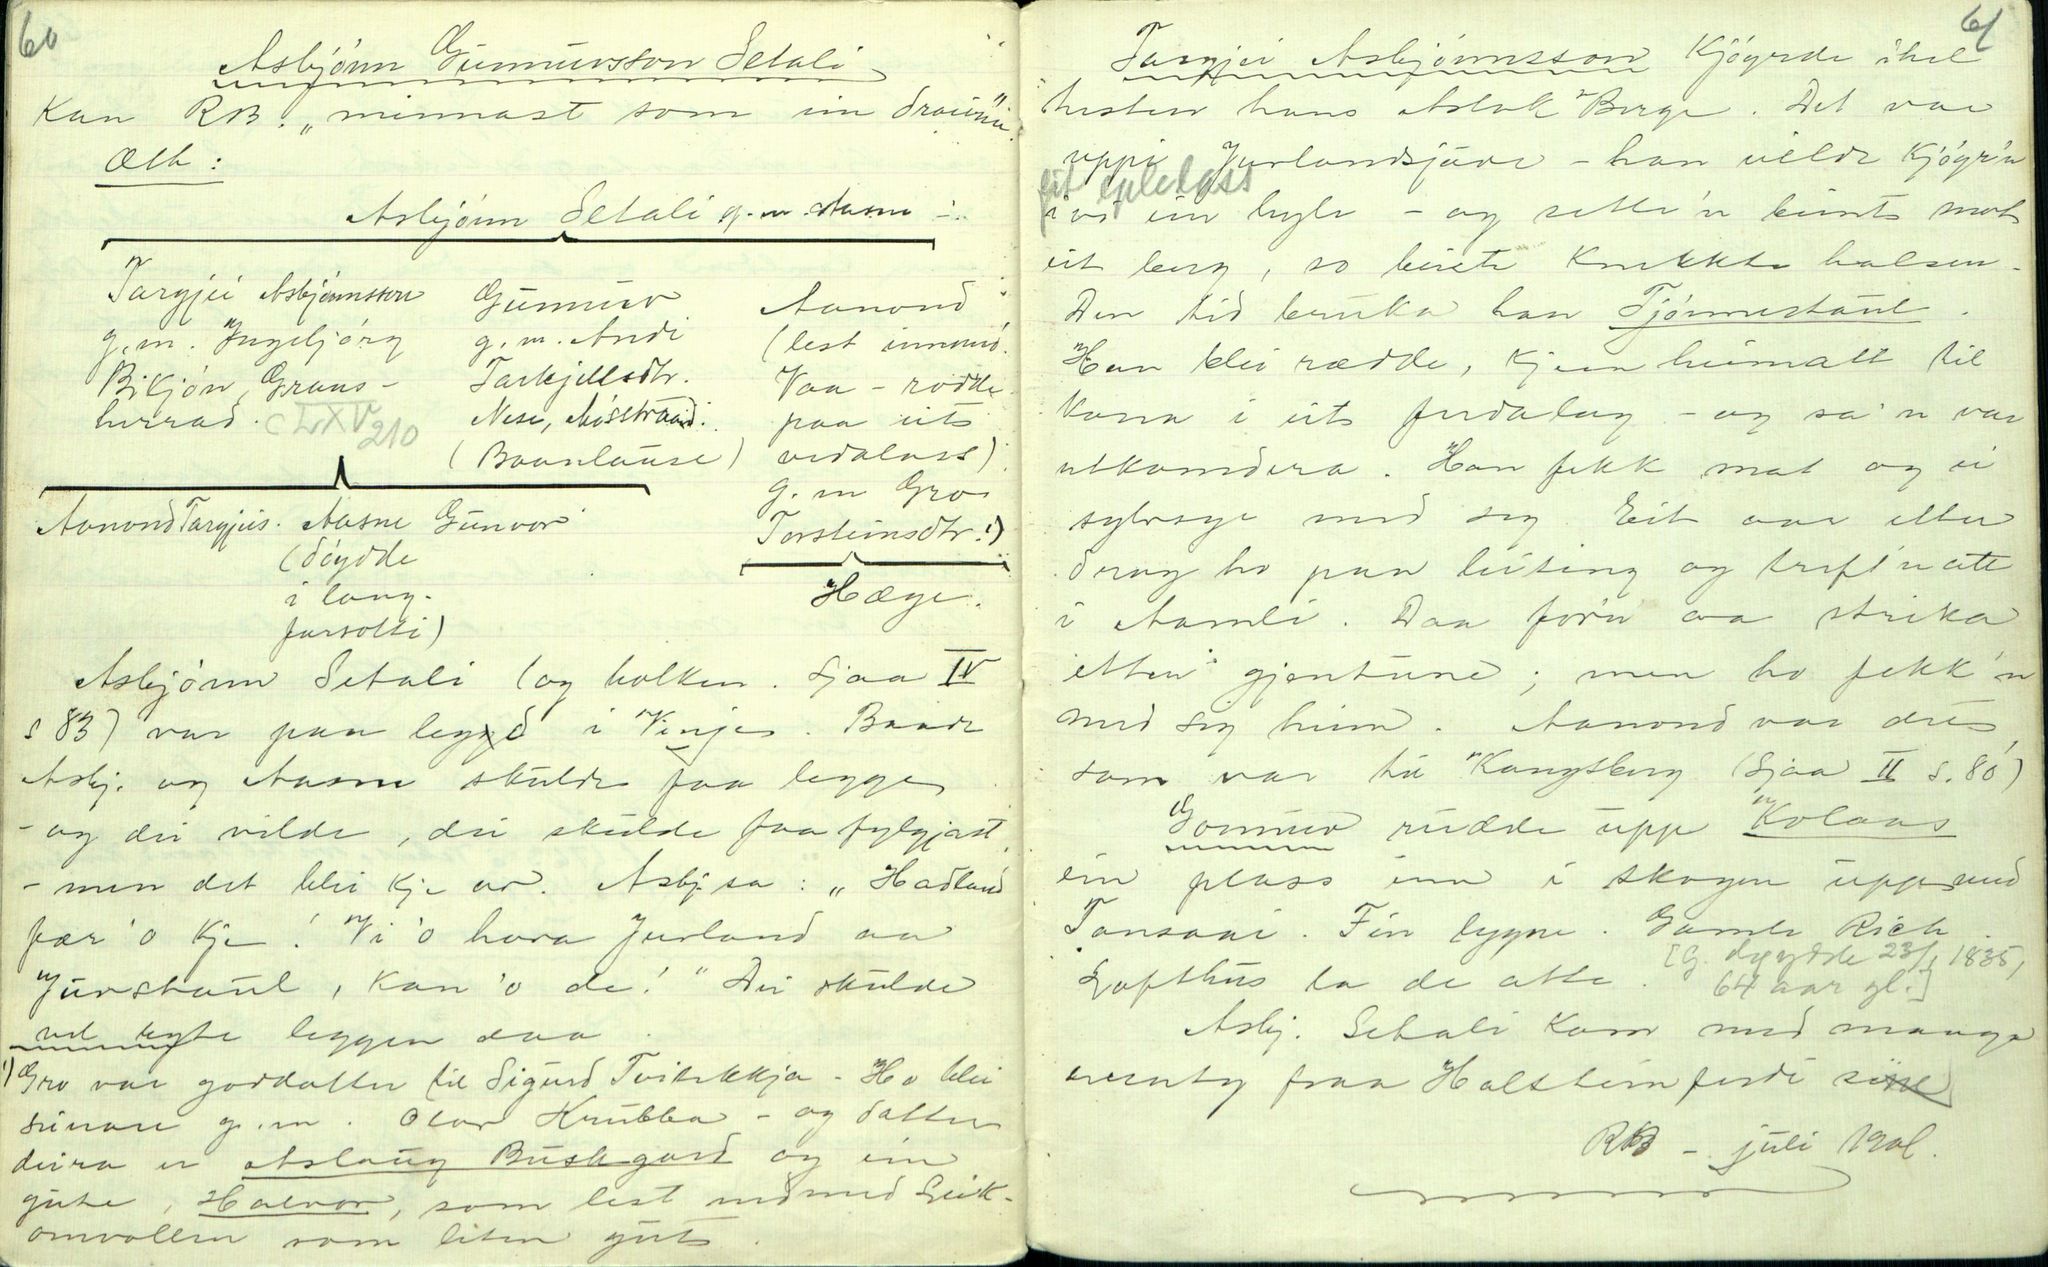 60
Asbjónn Gunnuvsson Setali
Kan RB. „minnast som ein draum".
Ætt:
Asbjónn Setali g.m. Aasne -:
Targjei Asbjónnsson
g.m. Ingebjórg
Bikjón, Grans-
herrad. CLXV 210
Gunnuv
g.m. Andi
Tarkjellsdtr.
Nese, Móstrand.
(Baanlause)
Aanond
(lest innmó.
Vaa - rodde
paa eit
vedalass)
g.m Gro
Torsteinsdtr.¹)
Aanond Targjeis. Aasne Gunvor
(dóydde
i lang-
farsotti)
Hæge.
Asbjónn Setali (og bolken. Sjaa IV
s 83) var paa legd i Vinje. Baade
Asbj. og Aasne skulde faa legge
- og dei vilde, dei skulde faa fylgjast,
- men det blei kje av. Asbj. sa: „Hadland
fær 'o kje! Vi 'o hava Jurland aa
Jurstaul, kan 'o de!" Dei skulde
vel byte leggen daa.
¹) Gro var goddotter til Sigurd Tveitekkja - Ho blei
seinare g.m. Olav Krubba - og dotter
deira er Aslaug Buskgard og ein
gute, Halvor, som lest ned med Leik-
omvollen som liten gut.
61
Targjei Asbjónnsson kjóyrde ihel
hesten hans Aslak Berge. Det var
uppi Jurlandsjuve - han vilde kjóyr'n
eit lplelass
ivi ein hyle - og sette'n beint mot
eit berg, so beiste knekkte halsen.
Den tid bruka han Tjónnestaul.
Han blei rædde, kjem heimatt til
kona i eit ferdalag - og sa'n var
utkomdera. Han fekk mat og ei
sylvsyge med seg. Eit aar etter
drog ho paa leiting og treft'n att
i Aamli. Daa for'n aa strika
etter gjentune; men ho fekk'n
med seg heim. Aanond var den
som var te Kongsberg (Sjaa II s. 80)
Gonnuv rudde upp Kvlaas
ein plass inn i skogen upp med
Tansaai. Fin bygne. Gamle Rich.
Lofthus la de atte. [G. dóydde 23/1 1835,
64 aar gl.]
Asbj. Setali kom med mange
eventy fraa Holstein ferdi si
RB - juli 1901.